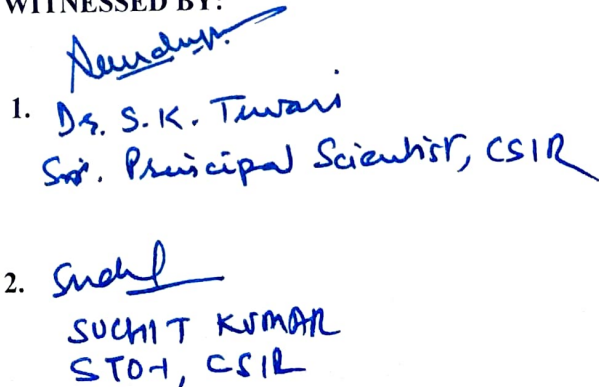 WITNESSED BY:
1. Dr. S.K. Tewari
Sr. Principal Scientist, CSIR
2.
SUCHIT KUMAR
CSIR